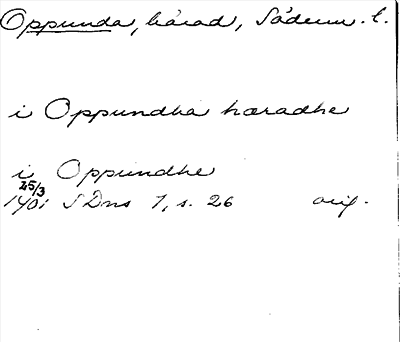 Oppunda, härad, Söderm. l.
i Oppundha hæradhe
i Oppundhe
25/3
1401 SDns 1, s. 26 orig.